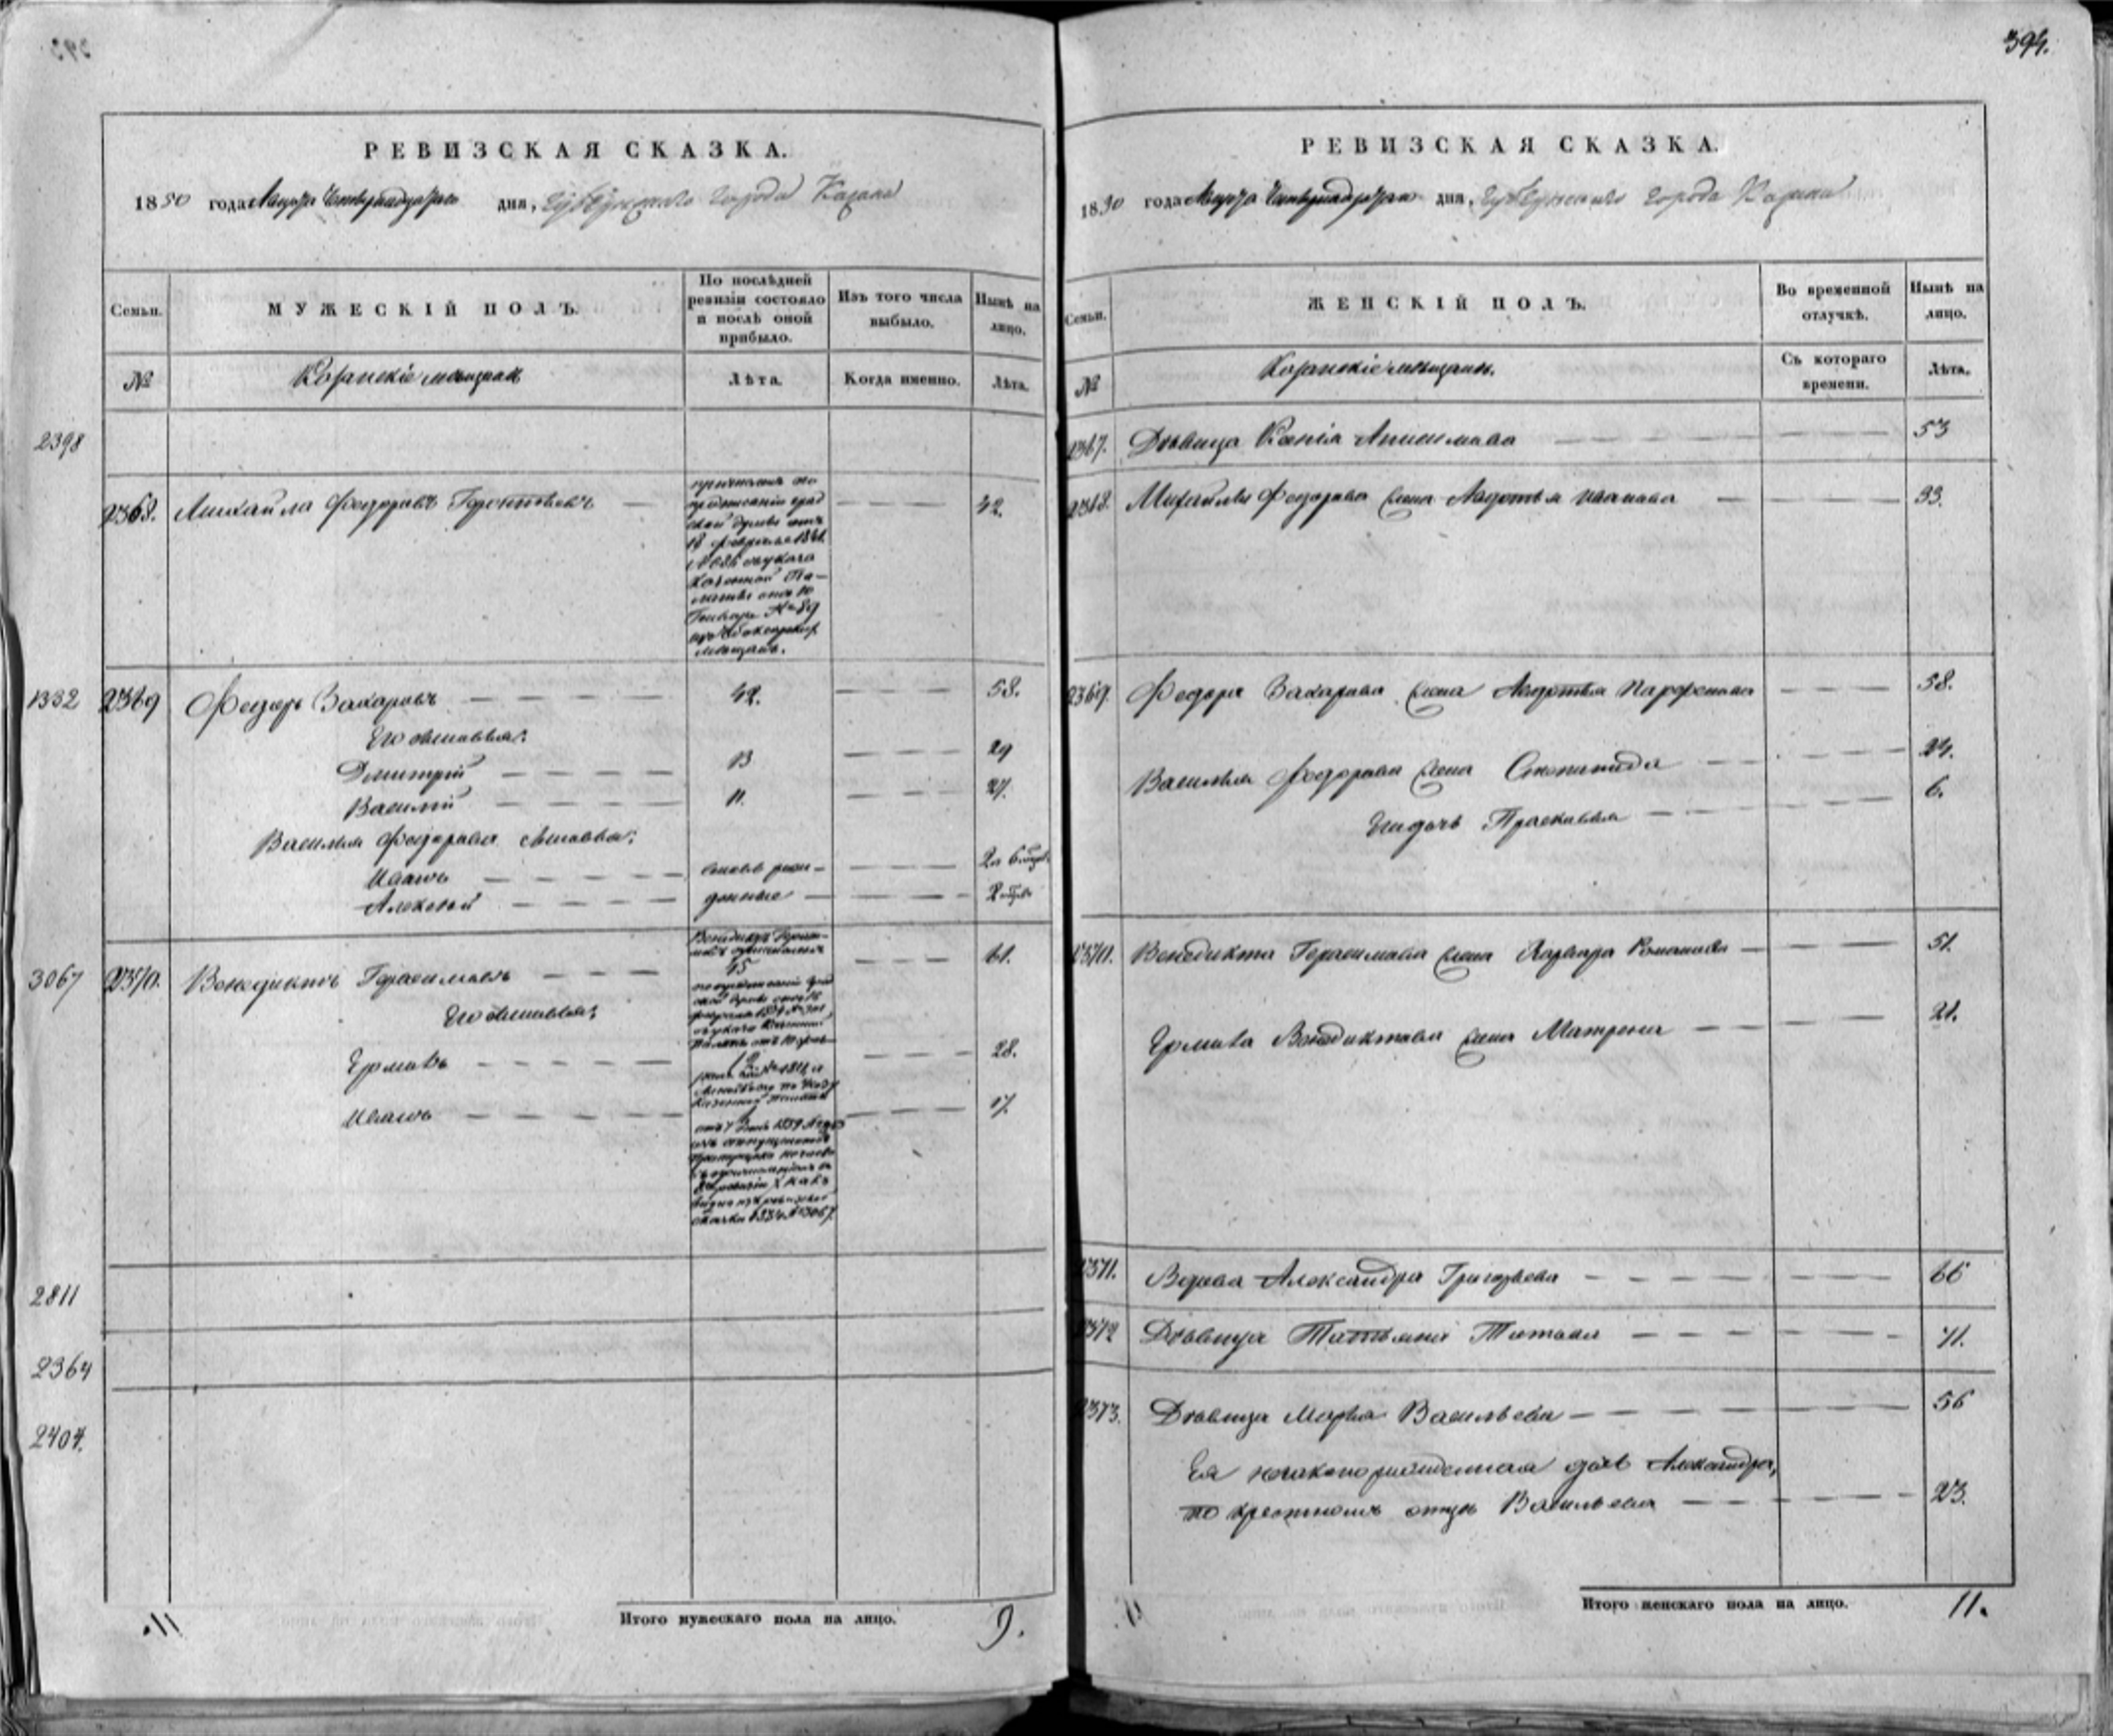 394.
РЕВИЗСКАЯ СКАЗКА.
1850 года Марта Четырнадцатаго дня, Губернскаго города Казани
Семьи.
МУЖЕСКІЙ ПОЛЪ.
По послѣдней ревизіи состояло и послѣ оной прибыло.
Изъ того числа выбыло.
Нынѣ на лицо.
№
Казанскіе мещане
Лѣта.
Когда именно.
Лѣта.
2398
2368. Михайла Федоровъ 42.
причисленъ по
предписанію град
ской думы отъ
18 февраля 1841
Казенной Па-
латы отъ 10
Генваря № 89
мещанъ.
1332 2369 Федоръ Захаровъ 42. 58.
Его сыновья:
Дмитрій 13 29
Василій 11. 27.
Василья Федорова сыновья:
Иванъ послѣ рев
Алексѣй
3067 2370. Венедиктъ Герасимовъ 45 61.
Его сыновья:
Ермилъ 12 28.
Иванъ 1 17.
сказки 1834 № 3067
2811
2364
2404.
Итого мужескаго пола на лицо. 9.
11.
РЕВИЗСКАЯ СКАЗКА.
1850 года Марта Четырнадцатаго дня, Губернскаго города Казани
Семьи.
ЖЕНСКІЙ ПОЛЪ.
Во временной отлучкѣ.
Нынѣ на лицо.
№
Казанскіе мещане.
Съ котораго времени.
Лѣта.
2367. Дѣвица Ксенія Анисимова 53
2368. Михайлы Федорова жена Авдотья Иванова 33.
2369. Федора Захарова жена Авдотья Парфенова 58.
Василья Федорова жена Степанида 24.
Ихъ дочь Прасковья 6.
2370. Венедикта Герасимова жена Варвара Романова 51.
Ермила Венедиктова жена Матрена 21.
2371. Вдова Александра Григорьева 66
2372 Дѣвица Татьяна Титова 71.
2373. Дѣвица Марья Васильева 56
Ея незаконорожденная дочь Александра,
по крестномъ отцѣ Васильева 23.
Итого женскаго пола на лицо. 11.